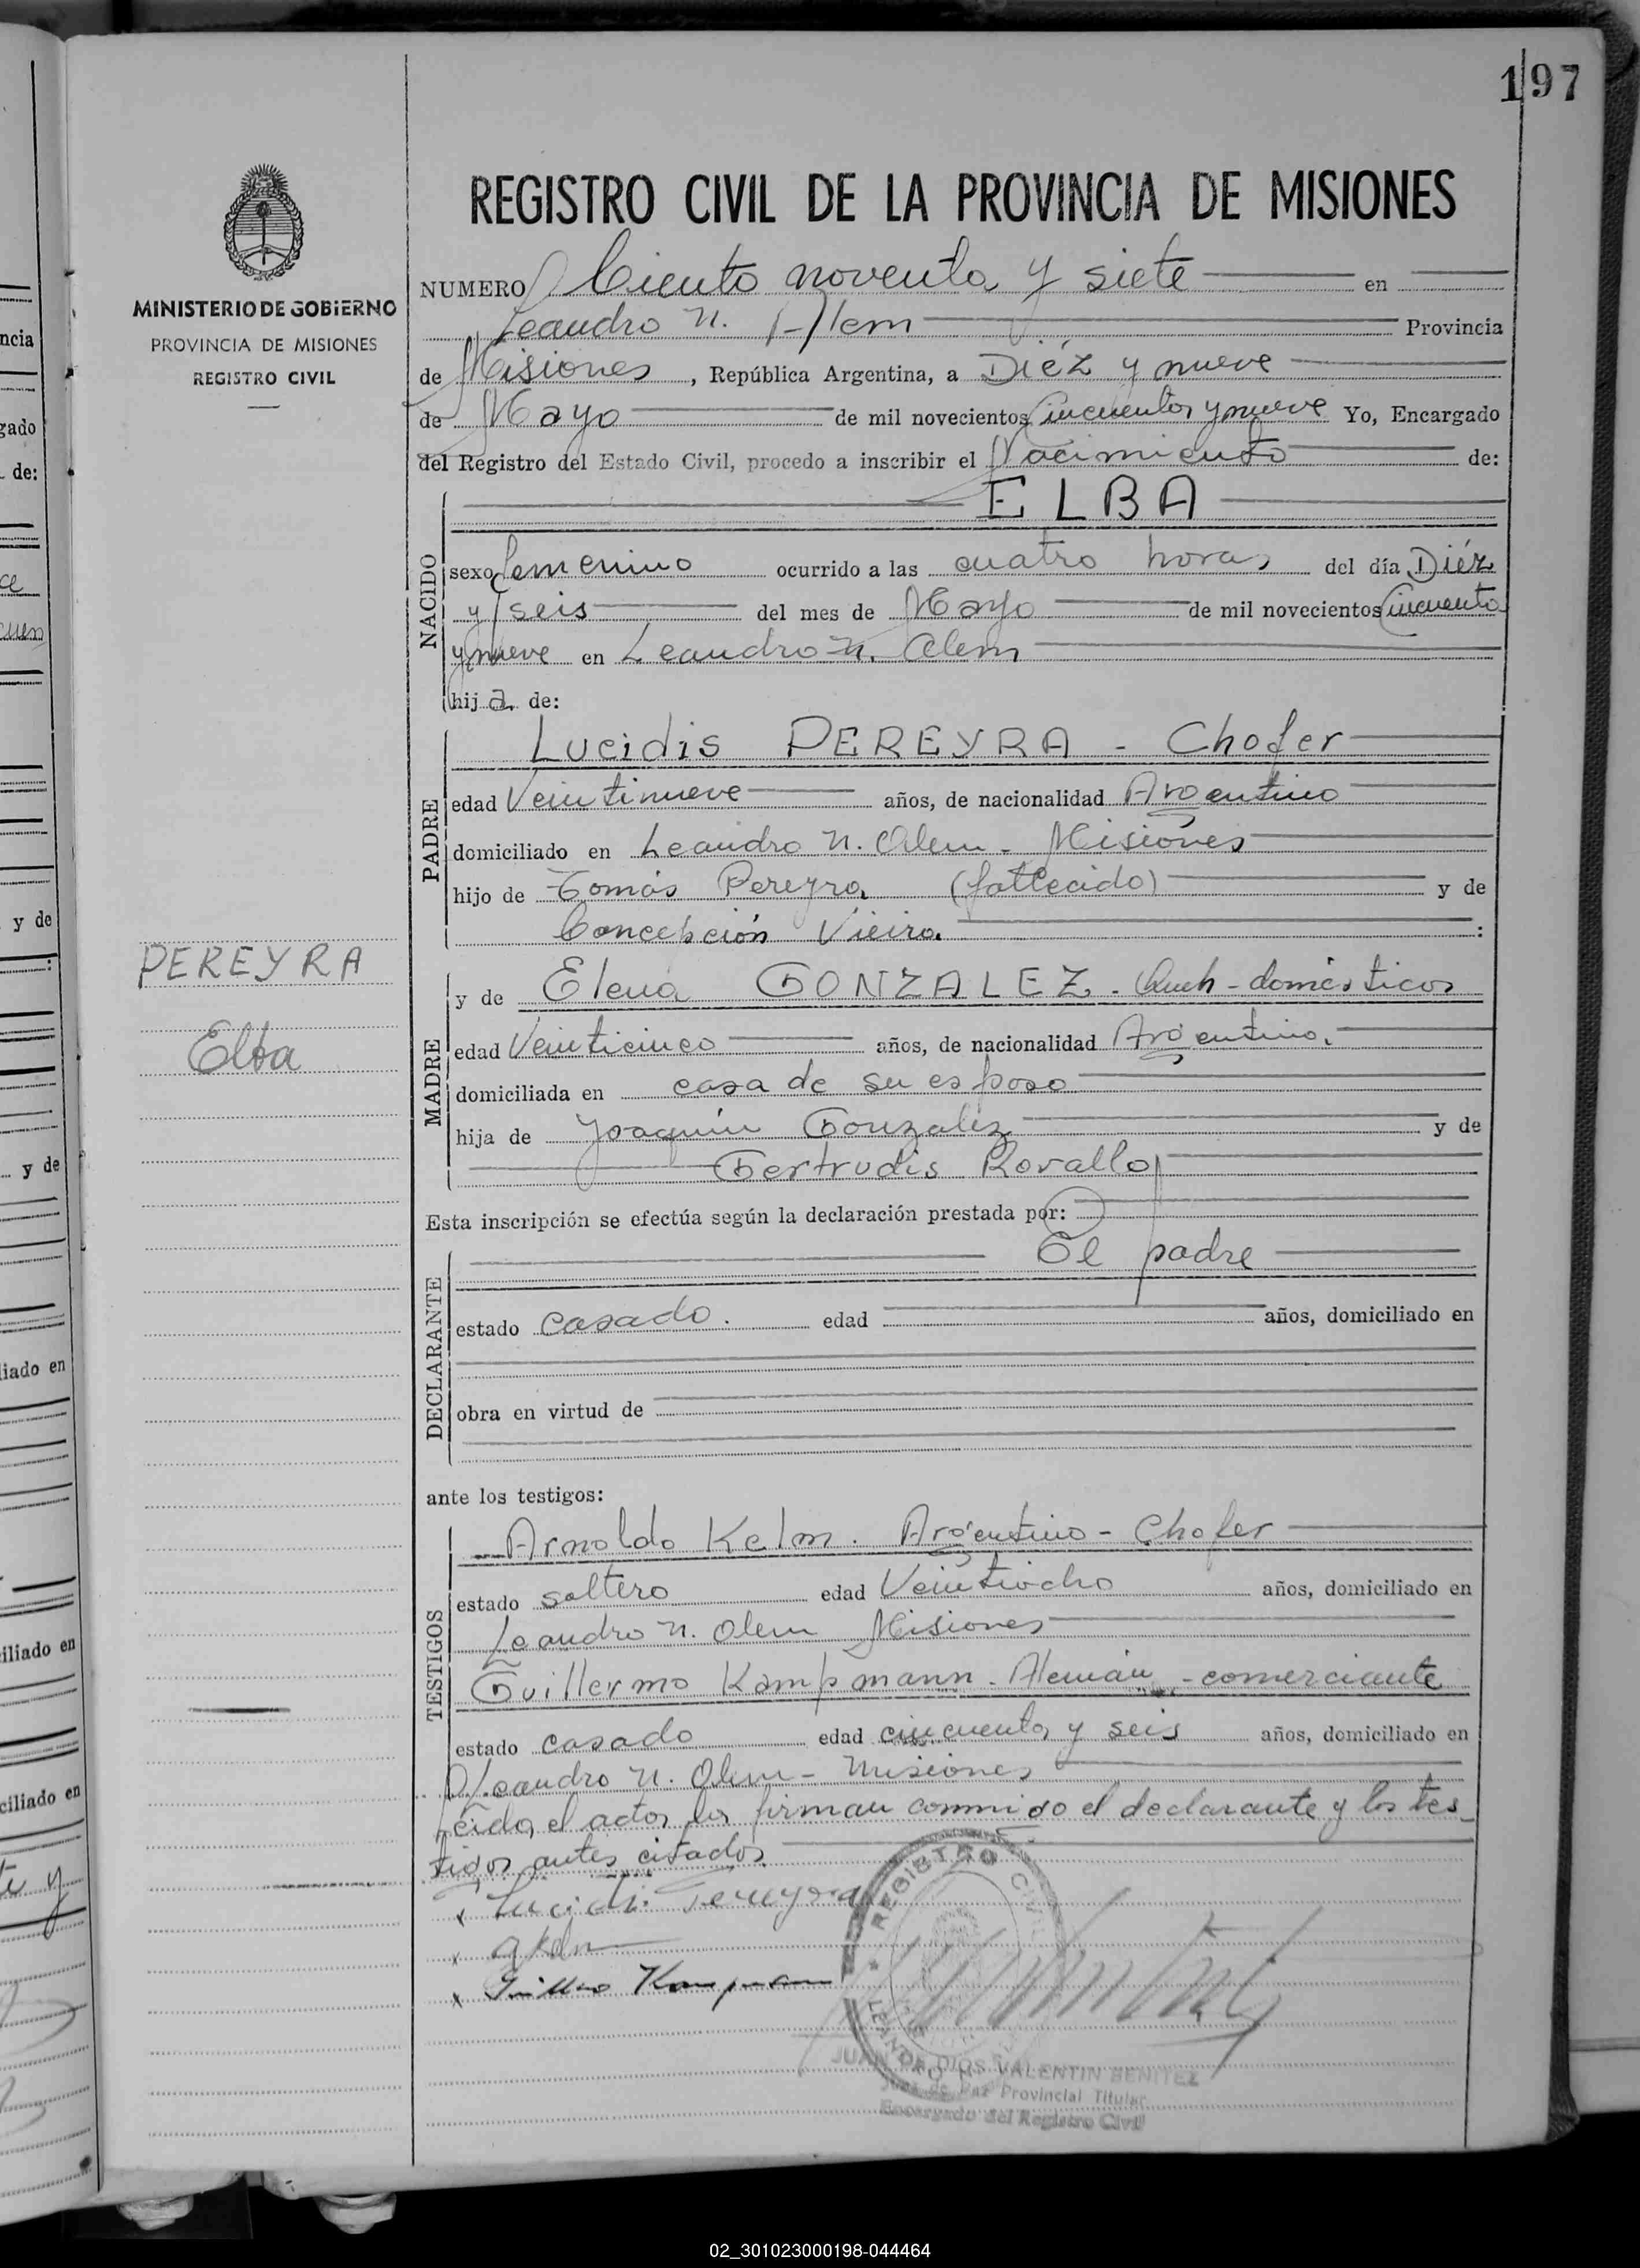 197
REGISTRO CIVIL DE LA PROVINCIA DE MISIONES
MINISTERIO DE GOBIERNO
PROVINCIA DE MISIONES
REGISTRO CIVIL
NUMERO Ciento noventa y siete en
Leandro N. Alem Provincia
de Misiones, República Argentina, a Diéz y nueve
de Mayo de mil novecientos Cincuenta y nueve Yo, Encargado
del Registro del Estado Civil, procedo a inscribir el Nacimiento de:
ELBA
NACIDO
sexo femenino ocurrido a las cuatro horas del día Diéz
y seis del mes de Mayo de mil novecientos Cincuenta
y nueve en Leandro N. Alem
hija de:
PADRE
Lucidis PEREYRA - Chofer
edad Veintinueve años, de nacionalidad Argentino
domiciliado en Leandro N. Alem - Misiones
hijo de Tomás Pereyra (fallecido) y de
Concepción Vieira :
PEREYRA
Elba
MADRE
y de Elena GONZALEZ - Queh - domésticos
edad Veinticinco años, de nacionalidad Argentina.
domiciliada en casa de su esposo
hija de Joaquín Gonzalez y de
Gertrudis Rovallo
Esta inscripción se efectúa según la declaración prestada por:
DECLARANTE
El padre
estado casado. edad años, domiciliado en
obra en virtud de
ante los testigos:
TESTIGOS
Arnoldo Kelm. Argentino - Chofer
estado soltero edad Veintiocho años, domiciliado en
Leandro N. Alem Misiones
Guillermo Kampmann - Alemán - comerciante
estado casado edad cincuenta y seis años, domiciliado en
Leandro N. Alem - Misiones
Leida el acta, la firman conmigo el declarante y los tes-
tigos antes citados.
x Lucidis Pereyra
x A Kelm
x Guillermo Kampmann
REGISTRO CIVIL
LEANDRO N.
JUAN DE DIOS VALENTIN BENITEZ
Juez de Paz Provincial Titular
Encargado del Registro Civil
02_301023000198-044464